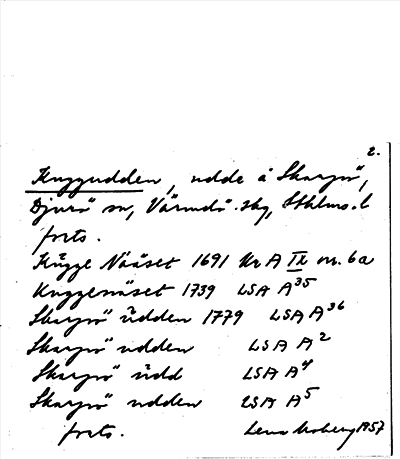 2.
Kuggudden, udde å Skarpö,
Djurö sn, Värmdö skg, Sthlms. l
forts.
Kŭgge Nääset 1691 Kr A IX nr. 6a
Kuggenäset 1739 LSA A35
Skarpö ŭdden 1779 LSA A36
Skarpö udden LSA A2
Skarpö ŭdd LSA A4
Skarpö udden LSA A5
forts. Lena Moberg 1957